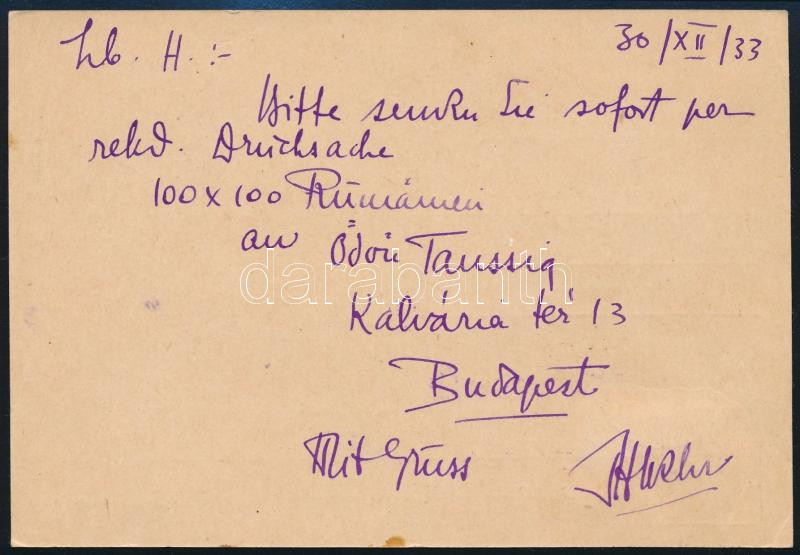 30/XII/33
Lb. H. :-
Bitte senden Sie sofort per
rekd. Drucksache
100 x 100 Rumänien
an Ödön Taussig
darabanth
Kálvária tér 13
Budapest
Mit Gruss